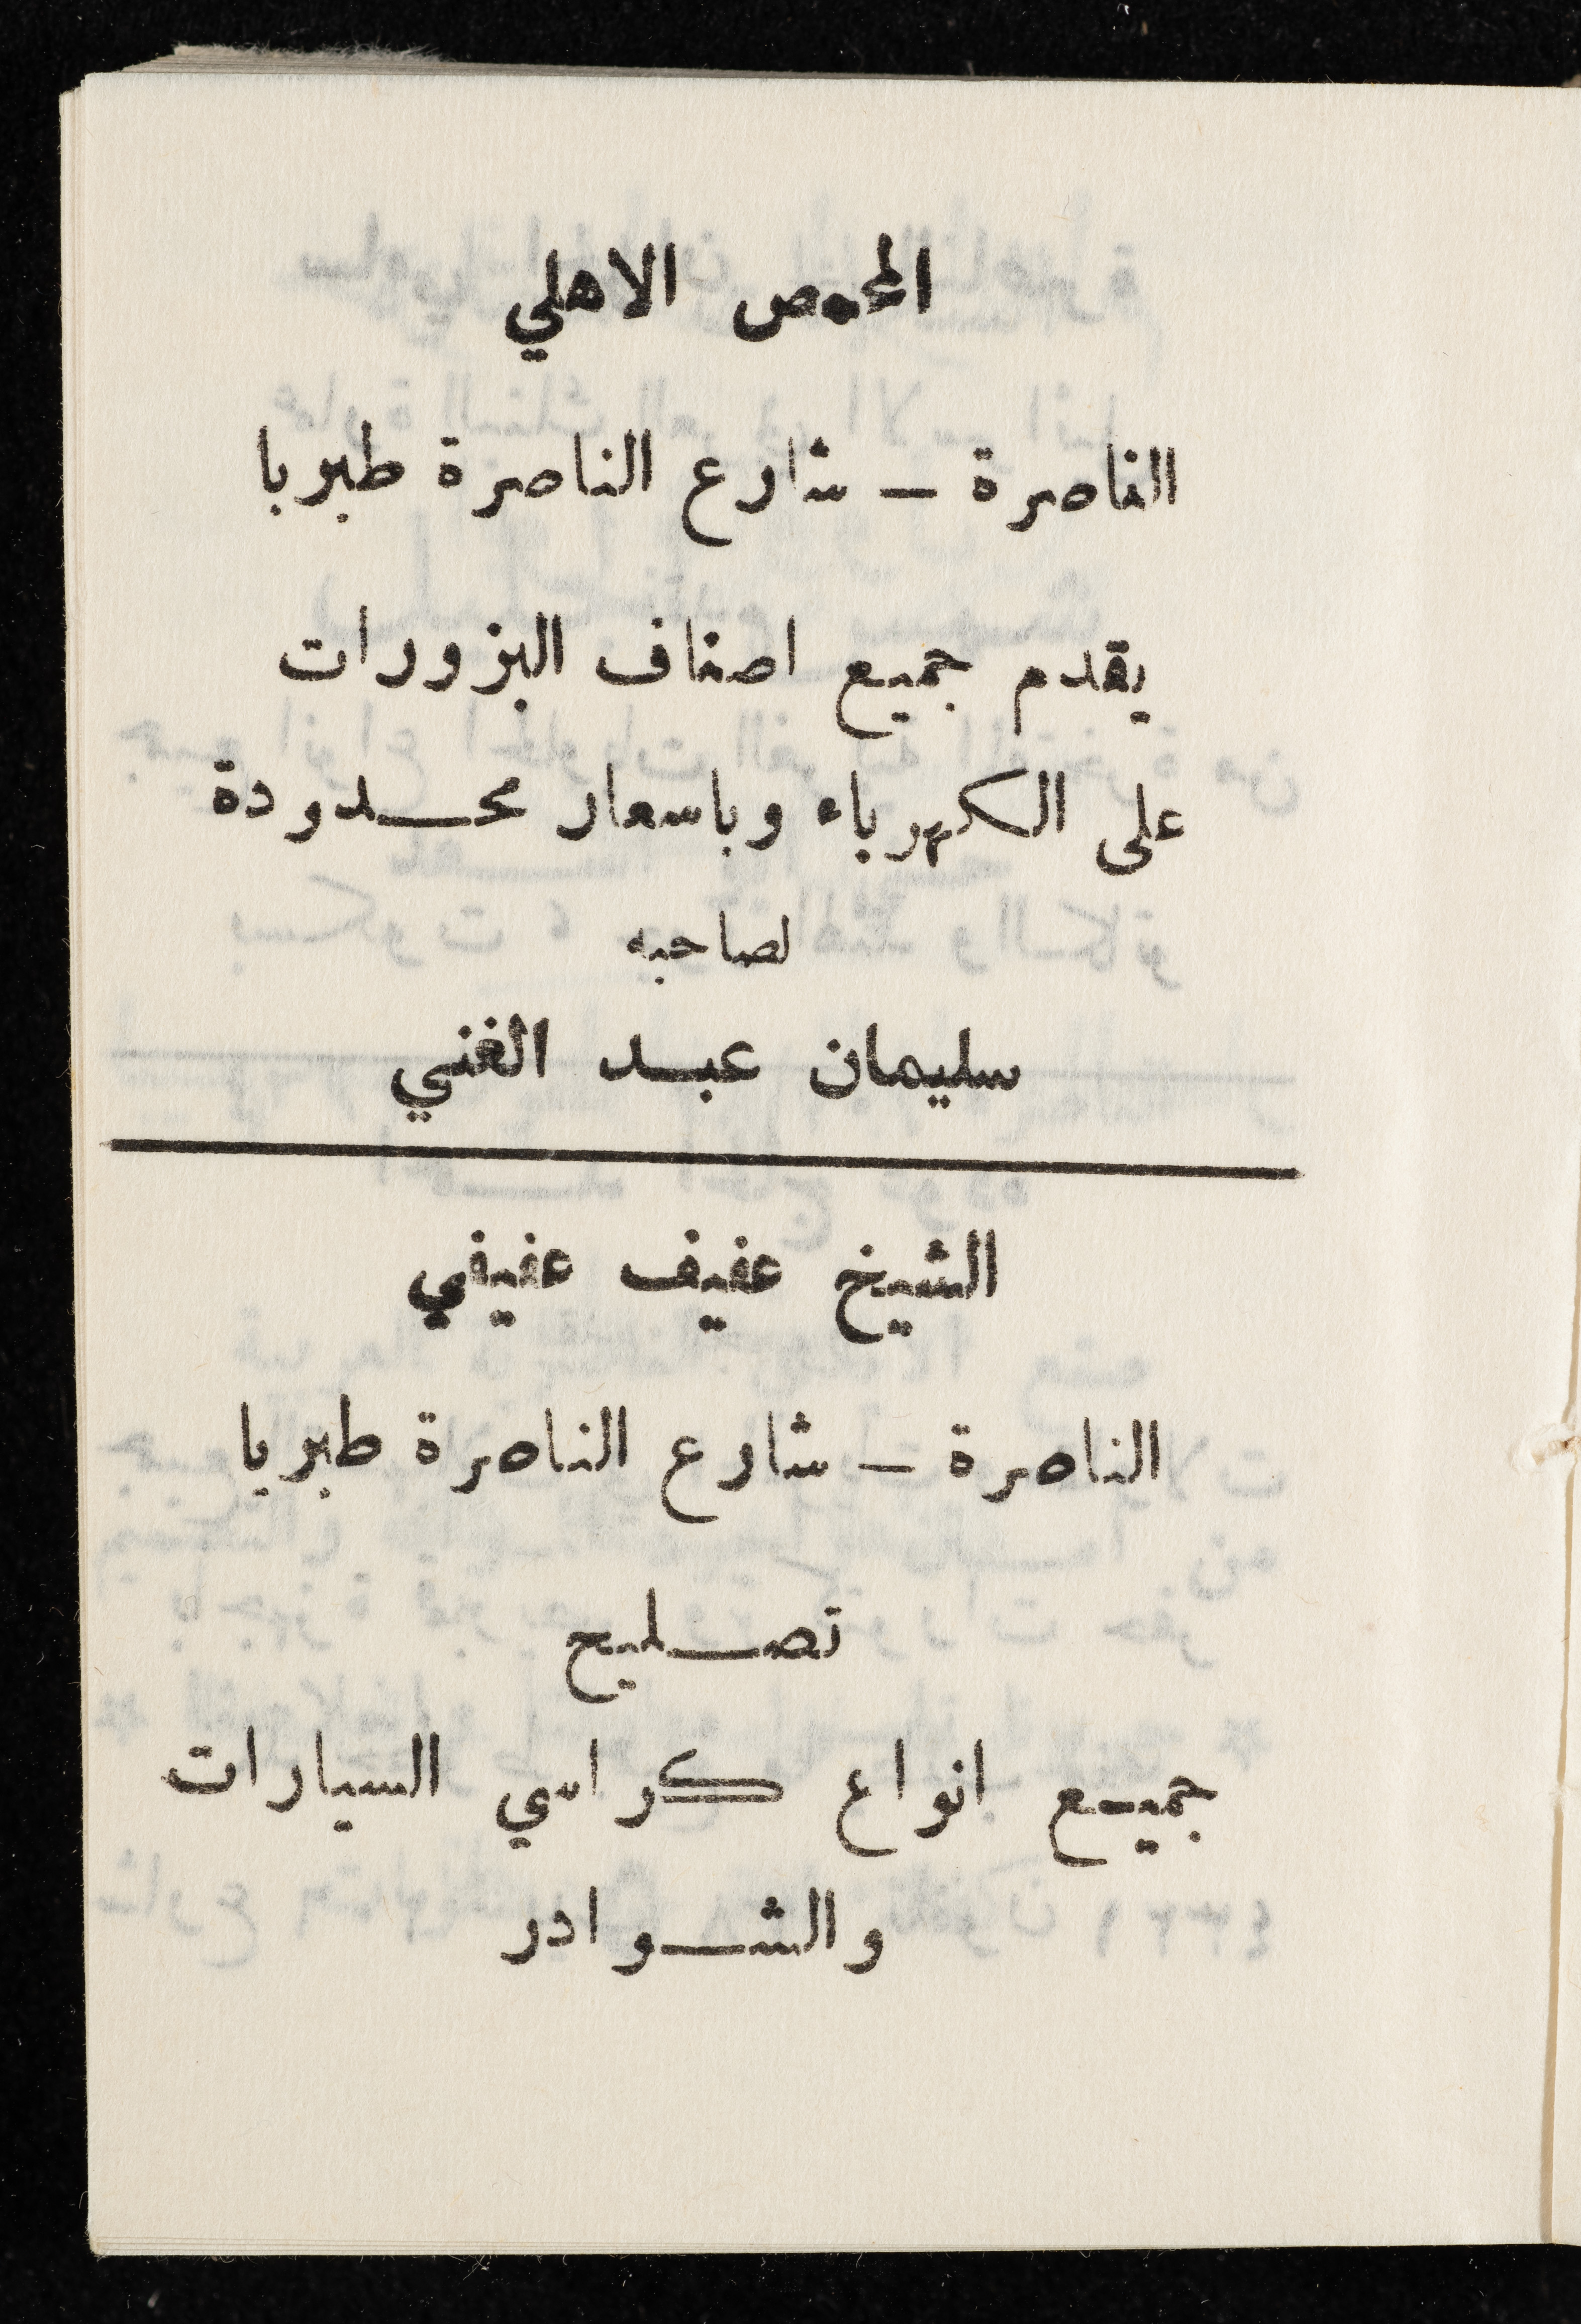 المحمص الاهلي
الناصرة — شارع الناصرة طبريا
يقدم جميع اصناف البزورات
على الكهرباء وباسعار محدودة
لصاحبه
سليمان عبد الغني
الشيخ عفيف عفيفي
الناصرة — شارع الناصرة طبريا
تصليح
جميع انواع كراسي السيارات
والشوادر